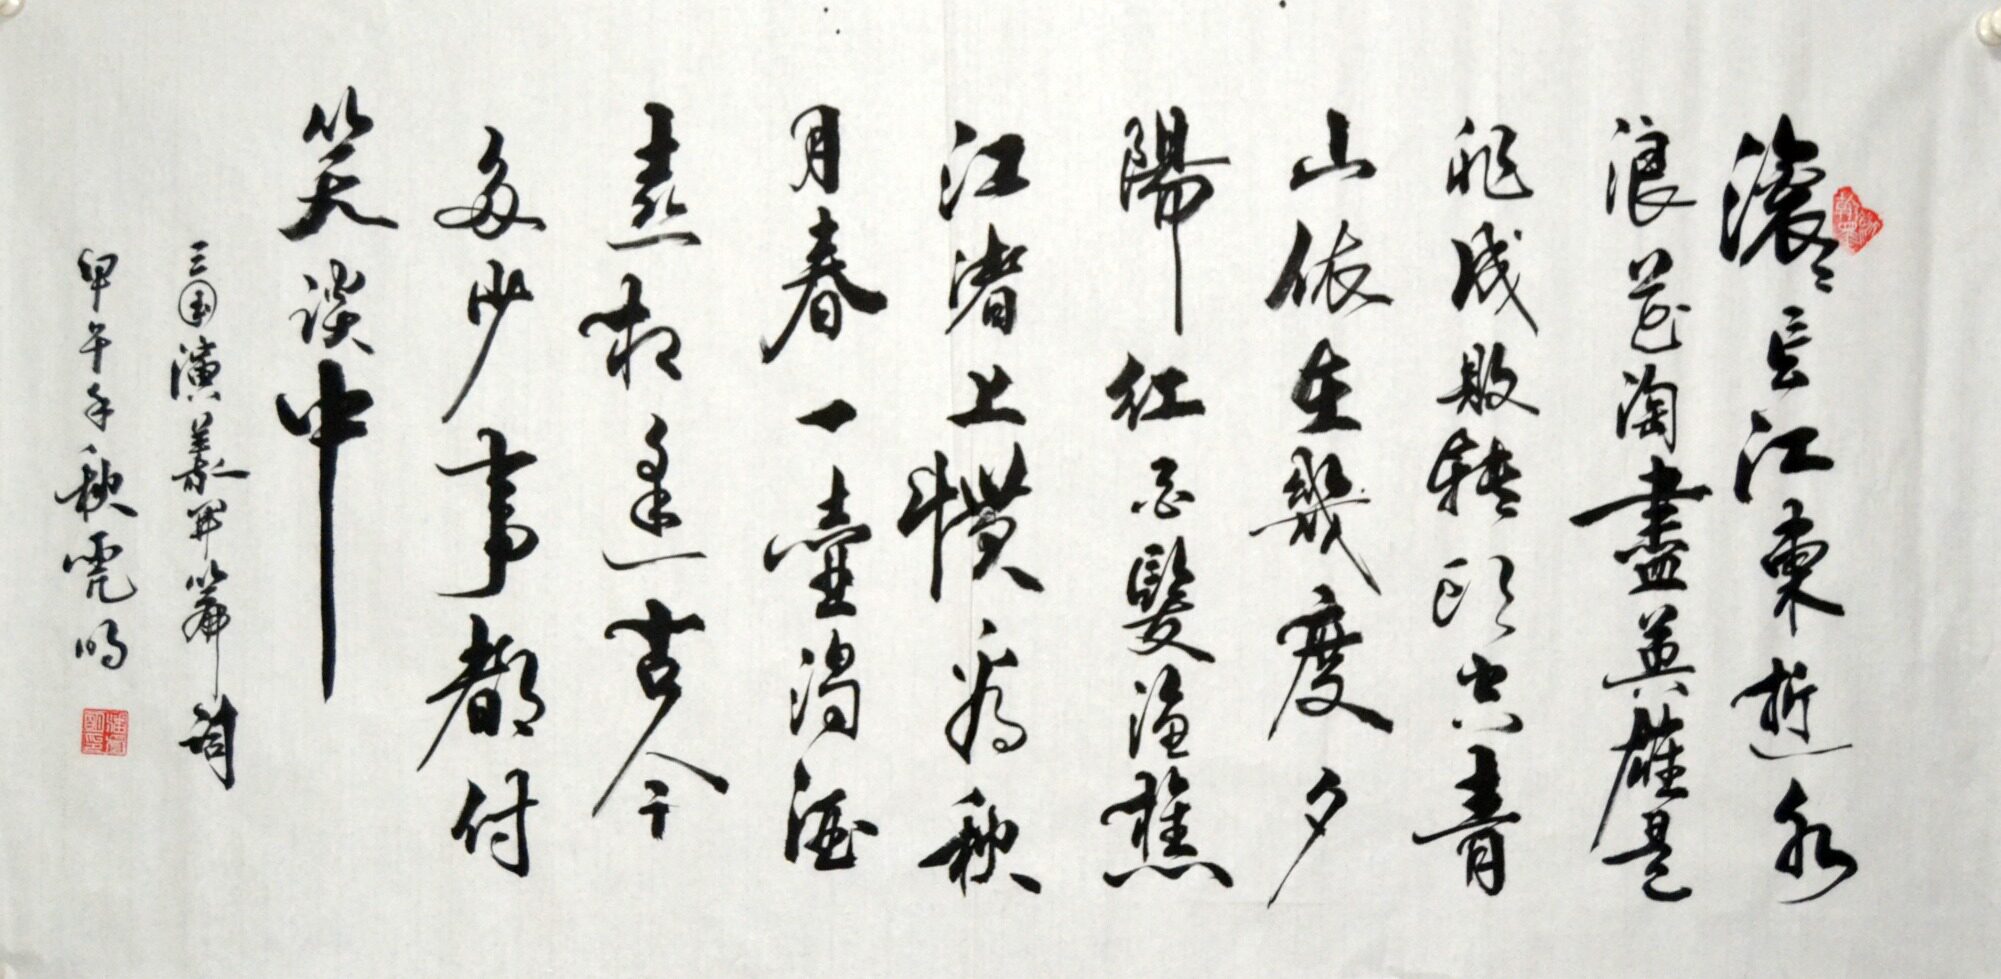 滾々長江東逝水
浪花淘盡英雄是
非成敗轉頭空青
山依在幾度夕
陽紅白髮漁樵
江渚上慣看秋
月春一壺濁酒
喜相逢古今
多少事都付
笑談中
三国演義開篇詞
甲午年秋